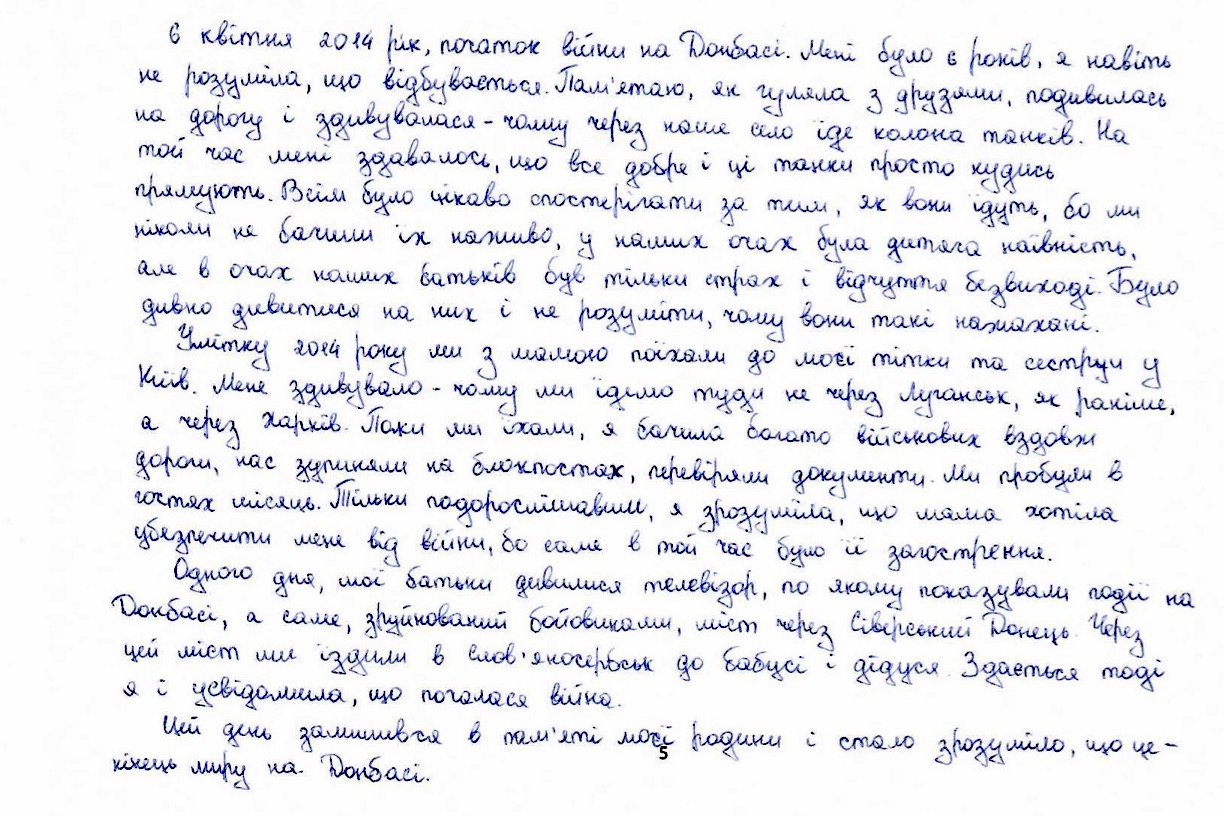 6 квітня 2014 рік, початок війни на Донбасі. Мені було 6 років, я навіть
не розуміла, що відбувається. Пам'ятаю, як гуляла з друзями, подивилась
на дорогу і здивувалася - чому через наше село їде колона танків. На
той час мені здавалось, що все добре і ці танки просто кудись
прямують. Всім було цікаво спостерігати за тим, як вони їдуть, бо ми
ніколи не бачили їх наживо, у наших очах була дитяча наївність,
але в очах наших батьків був тільки страх і відчуття безвиході. Було
дивно дивитися на них і не розуміти, чому вони такі налякані.
Улітку 2014 року ми з мамою поїхали до моєї тітки та сестри у
Київ. Мене здивувало - чому ми їдемо туди не через Луганськ, як раніше,
а через Харків. Поки ми їхали, я бачила багато військових вздовж
дороги, нас зупиняли на блокпостах, перевіряли документи. Ми пробули в
гостях місяць. Тільки подорослішавши, я зрозуміла, що мама хотіла
убезпечити мене від війни, бо саме в той час було її загострення.
Одного дня, мої батьки дивилися телевізор, по якому показували події на
Донбасі, а саме, зруйнований бойовиками, міст через Сіверський Донець. Через
цей міст ми їздили в Слов'яносербськ до бабусі і дідуся. Здається тоді
я і усвідомила, що почалася війна.
Цей день залишився в пам'яті моєї родини і стало зрозуміло, що це -
кінець миру на Донбасі.
5